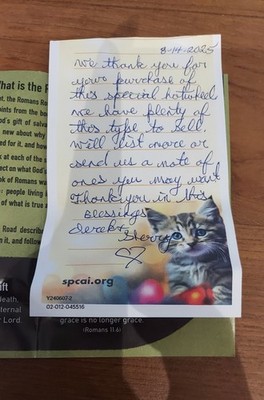 8-14-2025
We thank you for
your purchase of
this special hotwheel
we have plenty of
this type to sell.
will list more or
send us a note of
ones you may want
Thank you in this
Blessings
Derek &
Sherry
spcai.org
Y240607-2
02-012-045516
What is the
new about why
ed for it, and how
k at each of the
ect on what God's
k of Romans was
people living
of what is true
Road describe
n it, and follow
ift
death.
ternal
r Lord.
grace is no longer grace.
(Romans 11:6)